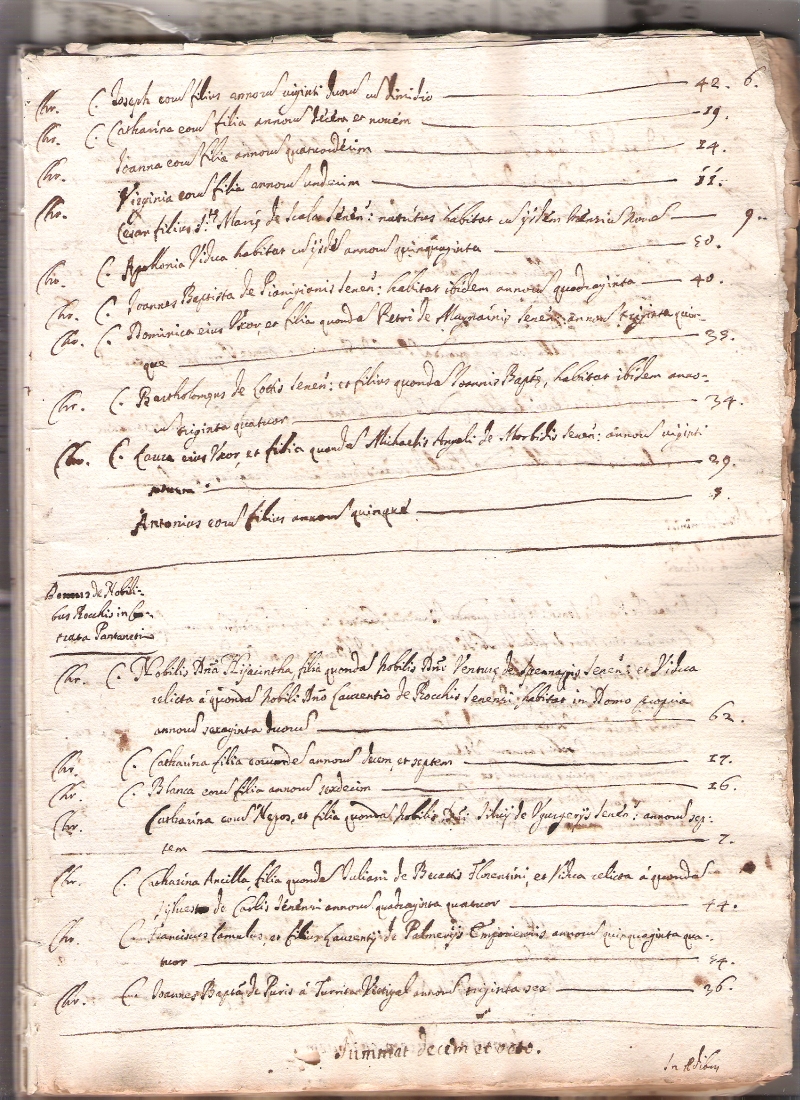 6.
Chr. C. Joseph eorum filius annorum viginti duorum cum dimidio 42.
Chr. C. Catharina eorum filia annorum decem et novem 19.
Chr. Joanna eorum filia annorum quatuordecim 14.
Chr. Virginia eorum filia annorum undecim 11.
Chr. Cesar filius habitat cum ijsdem 9.
C. Apollonia Vidua habitat cum ijsdem annorum quinquaginta 50.
Chr. C. Joannes Baptista de Senen: habitat ibidem annorum quadraginta 40.
Chr. C. Dominica eius Uxor, et filia quondam Petri de Senen: annorum triginta quin-
que 35.
Chr. C. Bartholomeus de Senen: et filius quondam Joannis Bapt̃ę, habitat ibidem anno-
rum triginta quatuor 34.
Chr. C. Laura eius Uxor, et filia quondam Michaelis Angeli de Morbidis Senen: annorum viginti
29.
Antonius eorum filius annorum quinque 5.
Domus de Nobili-
bus Rocchis in Con-
trata Pantaneti
Chr. C. Nobilis Dña Hyacintha, filia quondam Nobilis Dñi Venturę de Senen: et Vidua
relicta á quondam Nobili Dño Laurentio de Rocchis Senensi, habitat in Domo propria
annorum sexaginta duorum 62.
Chr. C. Catharina filia eorumdem annorum decem, et septem 17.
Chr. C. Blanca eorum filia annorum sexdecim 16.
Chr. Catharina eorum Nepos, et filia quondam Nobilis Dñi Silvij de Ugurgerijs Senen: annorum sep-
tem 7.
Chr. C. Catharina Ancilla, filia quondam Juliani de Florentini, et Vidua relicta á quondam
Sylvestro de Carlis Senensi annorum quadraginta quatuor 44.
Chr. C. Franciscus famulus, et filius Laurentij de Palmerijs annorum quinquaginta qua-
tuor 54.
Chr. C. Joannes Bapta de Turrita annorum triginta sex 36.
Summat decem et octo.
In Ædibus